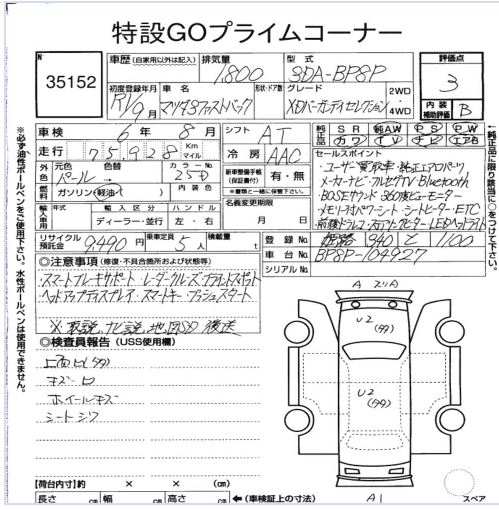 特設GOプライムコーナー
N
35152
車歴 (自家用以外は記入)
排気量
1800
型式
3DA-BP8P
評価点
3
初度登録年月
R1/9月
車名
マツダ3ファストバック
形状・ドア数
グレード
XDバーガンディセレクション
2WD
4WD
内装補助評価
B
車検
6年 8月
シフト
AT
純正品
SR
純AW
PS
PW
カワ
TV
ナビ
エアB
走行
75,928
Km
マイル
冷房
AAC
セールスポイント
・ユーザー買取車・純正エアロパーツ
メーカーナビ・フルセグTV・Bluetooth
BOSEサウンド・360度ビューモニター
メモリー付パワーシート・シートヒーター・ETC
前後ドラレコ・ステアリングヒーター・LEDヘッドライト
外色
元色
パール
色替
カラーNo.
25D
燃料
ガソリン・軽油
内装色
新車整備手帳
(保証書付)
有・無
※書類と一緒に保管下さい。
名義変更期限
月 日
輸入車用
年式
輸入区分
ディーラー・並行
ハンドル
左・右
リサイクル預託金
9,490円
乗車定員
5人
積載量
t
登録No.
姫路 340 と 1100
車台No.
BP8P-104927
シリアルNo.
◎注意事項 (修復・不具合箇所および状態等)
スマートブレーキサポート レーダークルーズ ブラインドスポット
ヘッドアップディスプレイ・スマートキー・プッシュスタート
※取説、ナビ説、地図SD 後送
◎検査員報告 (USS使用欄)
キズ
ホイールキズ
シートシワ
A
U2
(タタ)
U2
(タタ)
A1
スペア
【荷台内寸】約 × × (cm)
長さ cm 幅 cm 高さ cm
←(車検証上の寸法)
※必ず油性ボールペンをご使用下さい。水性ボールペンは使用できません。
←純正品に限り該当に○をつけて下さい。